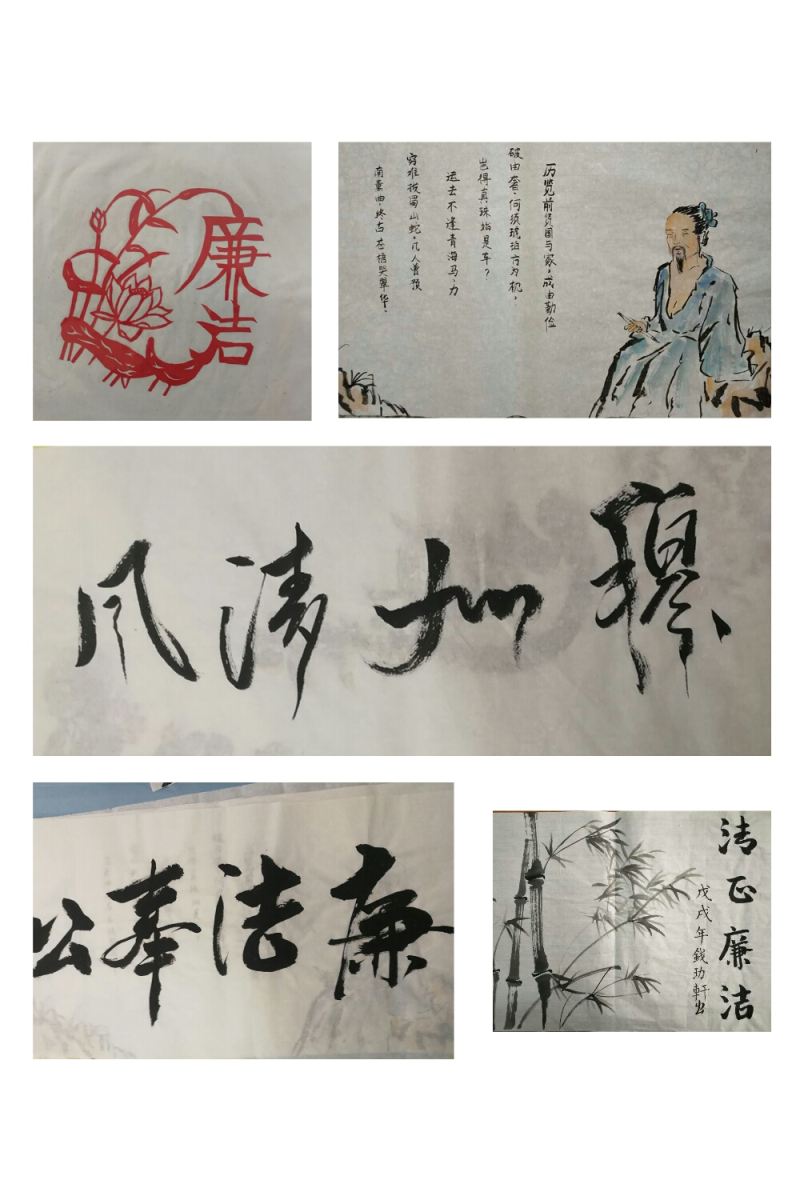 廉洁
历览前贤国与家，成由勤俭
破由奢，何须琥珀方为枕，
岂得真珠始是车？
运去不逢青海马，力
穷难拔蜀山蛇，几人曾预
南薰曲，终古苍梧哭翠华。
穆如清风
廉洁奉公
清正廉洁
戊戌年錢玏軒书